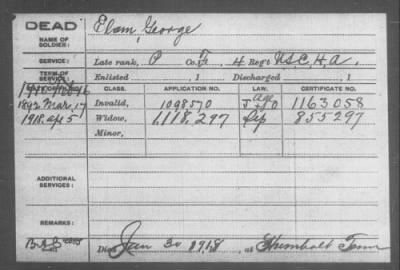 DEAD
NAME OF SOLDIER: Elam, George
SERVICE: Late rank, P Co. G, 4 Reg't U.S.C.H.A.
TERM OF SERVICE: Enlisted , 1 Discharged , 1
DATE OF FILING. CLASS. APPLICATION NO. LAW. CERTIFICATE NO.
1892 Mar. 17 Invalid, 1098570 Age 1163058
1918. Ap 5 Widow, 1,118,297 855297
Minor,
ADDITIONAL SERVICES:
REMARKS:
Died Jan 30 1918, at Humbolt Tenn